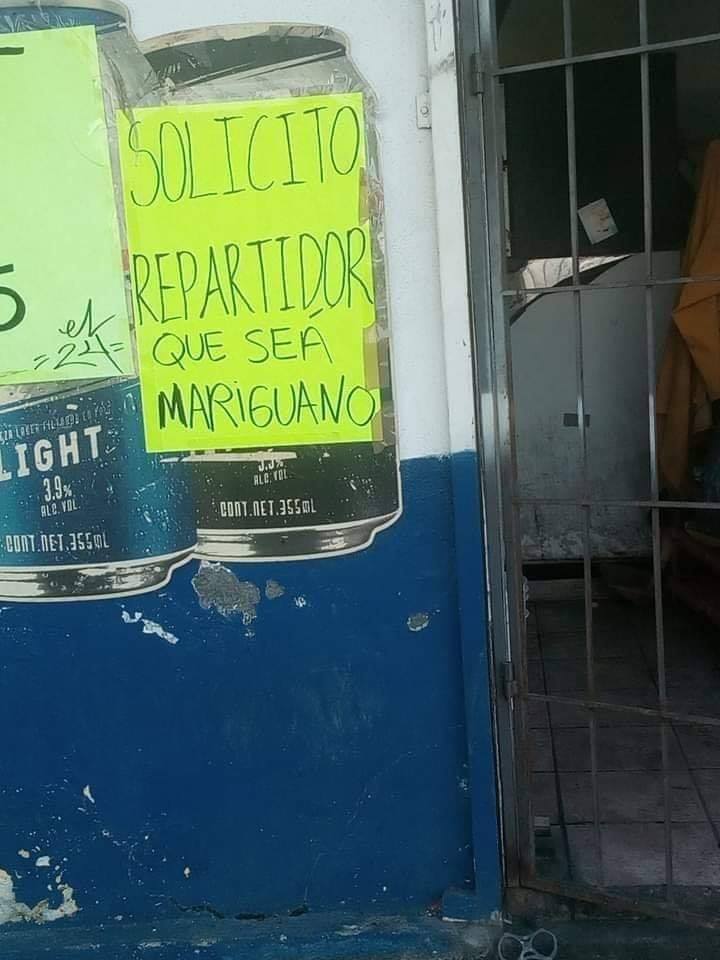 SOLICITO
REPARTIDOR
QUE SEA
MARIGUANO
5
el
=24=
LIGHT
3.9%
ALC. VOL
CONT.NET.355ml
ALC. VOL
CONT.NET.355ml